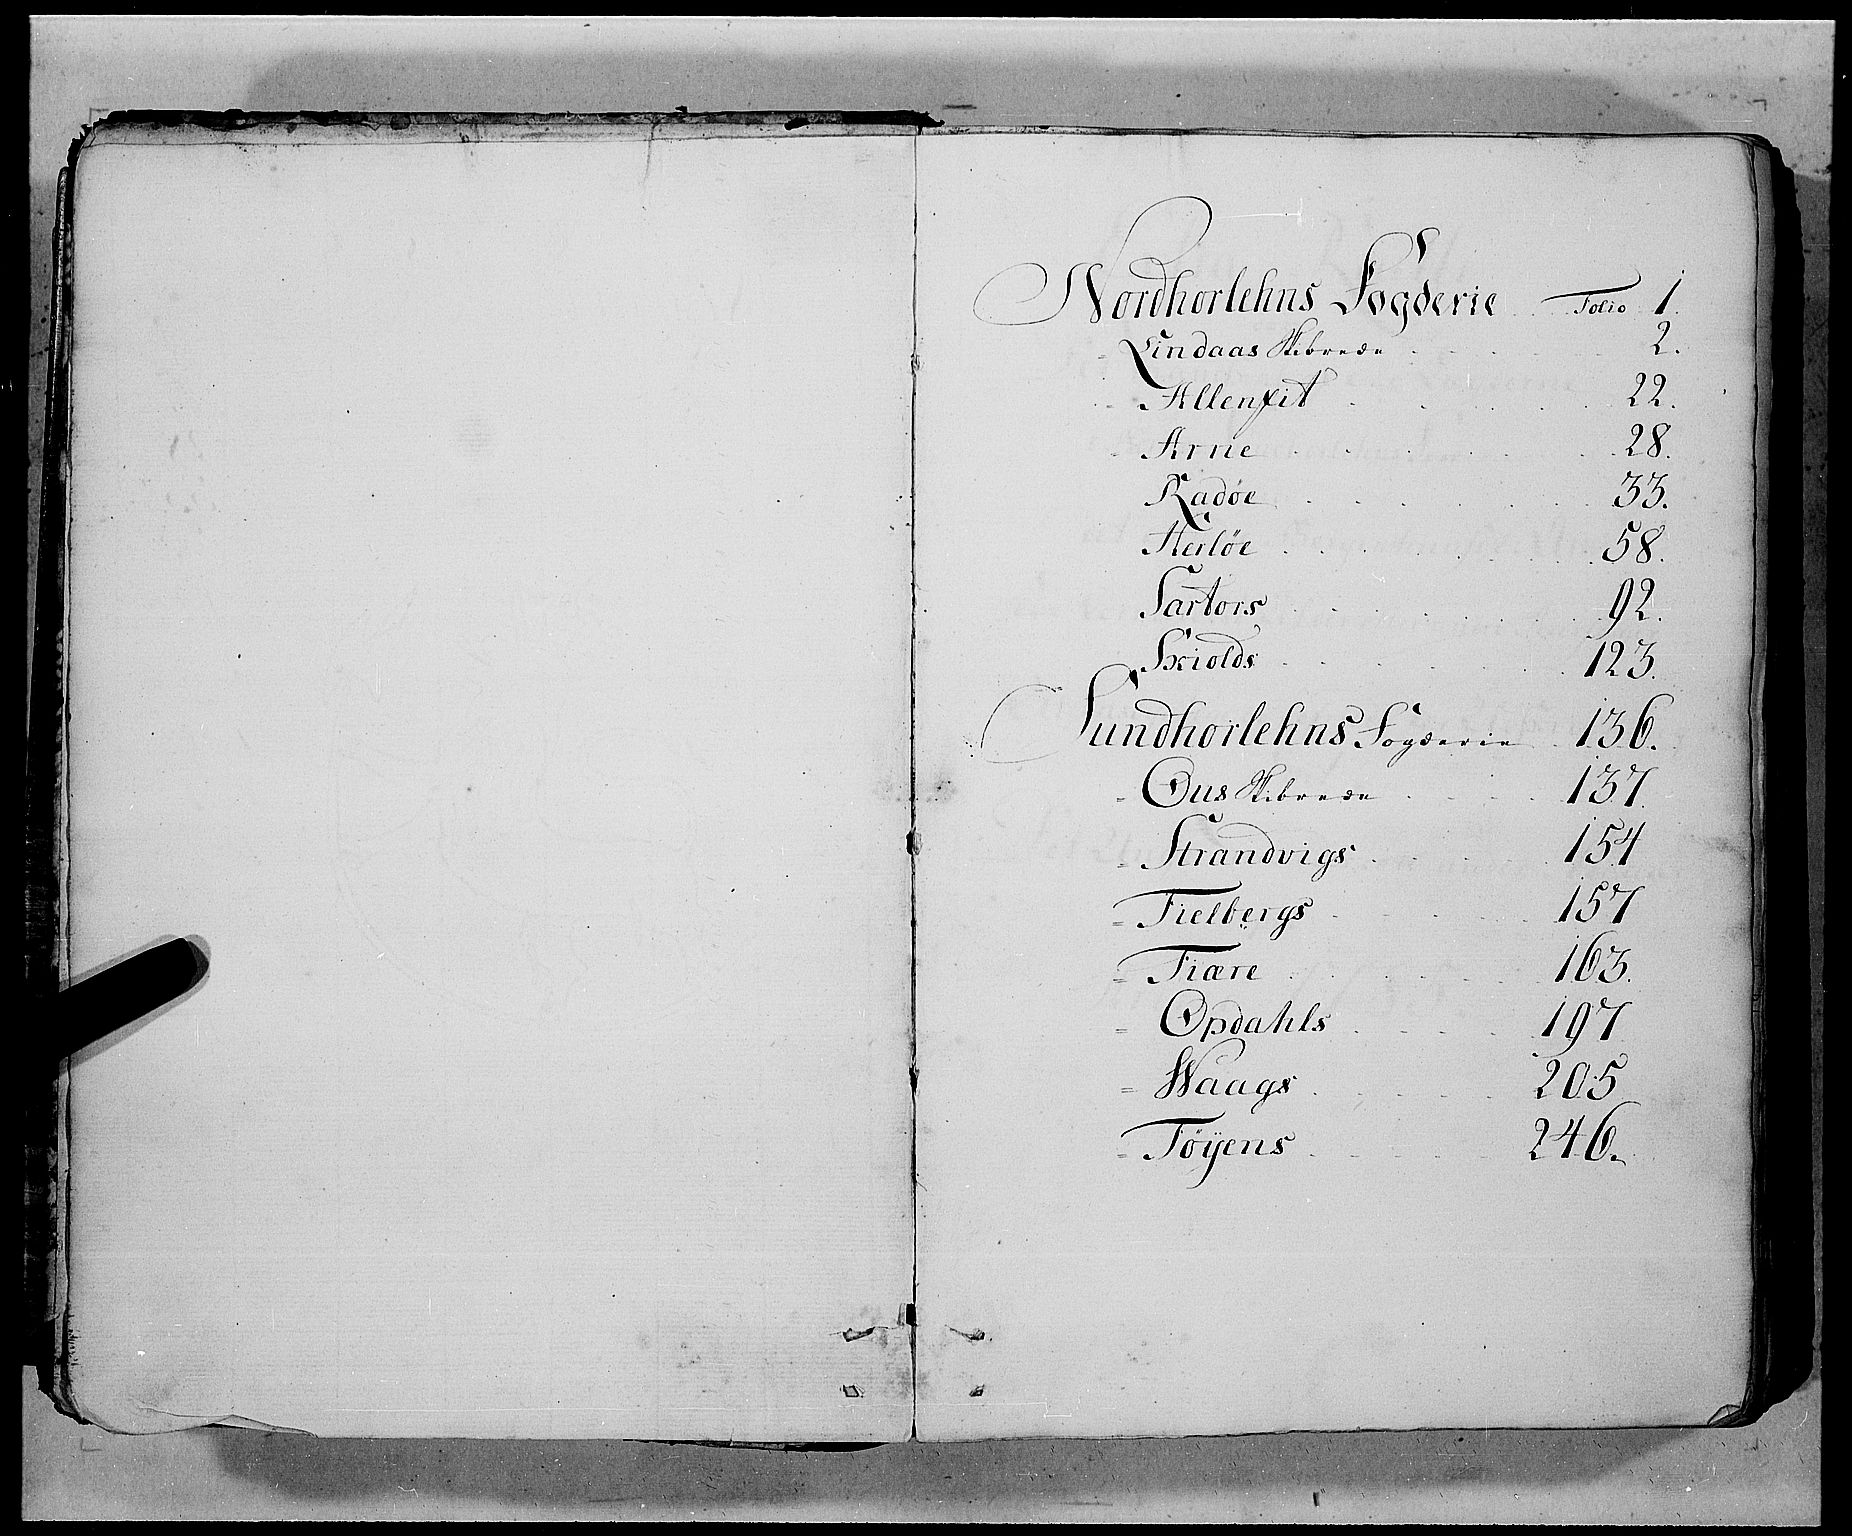 Nordhorlehns Fogderie . Folio 1.
- Lindaas Skibrede . . . . 2.
- Allenfit . . . . 22.
- Arne . . . . 28.
Radøe . . . . 33.
Herløe . . . . 58.
Sartors . . . . 92.
Skiolds . . . . 123.
Sundhorlehns Fogderie . 136.
= Ous Skibrede . . . . 137.
= Strandvigs . . . . 154
= Fielbergs . . . . 157
= Fiære . . . . 163.
= Opdahls . . . . 197
= Waags . . . . 205
= Føÿens . . . . 246.